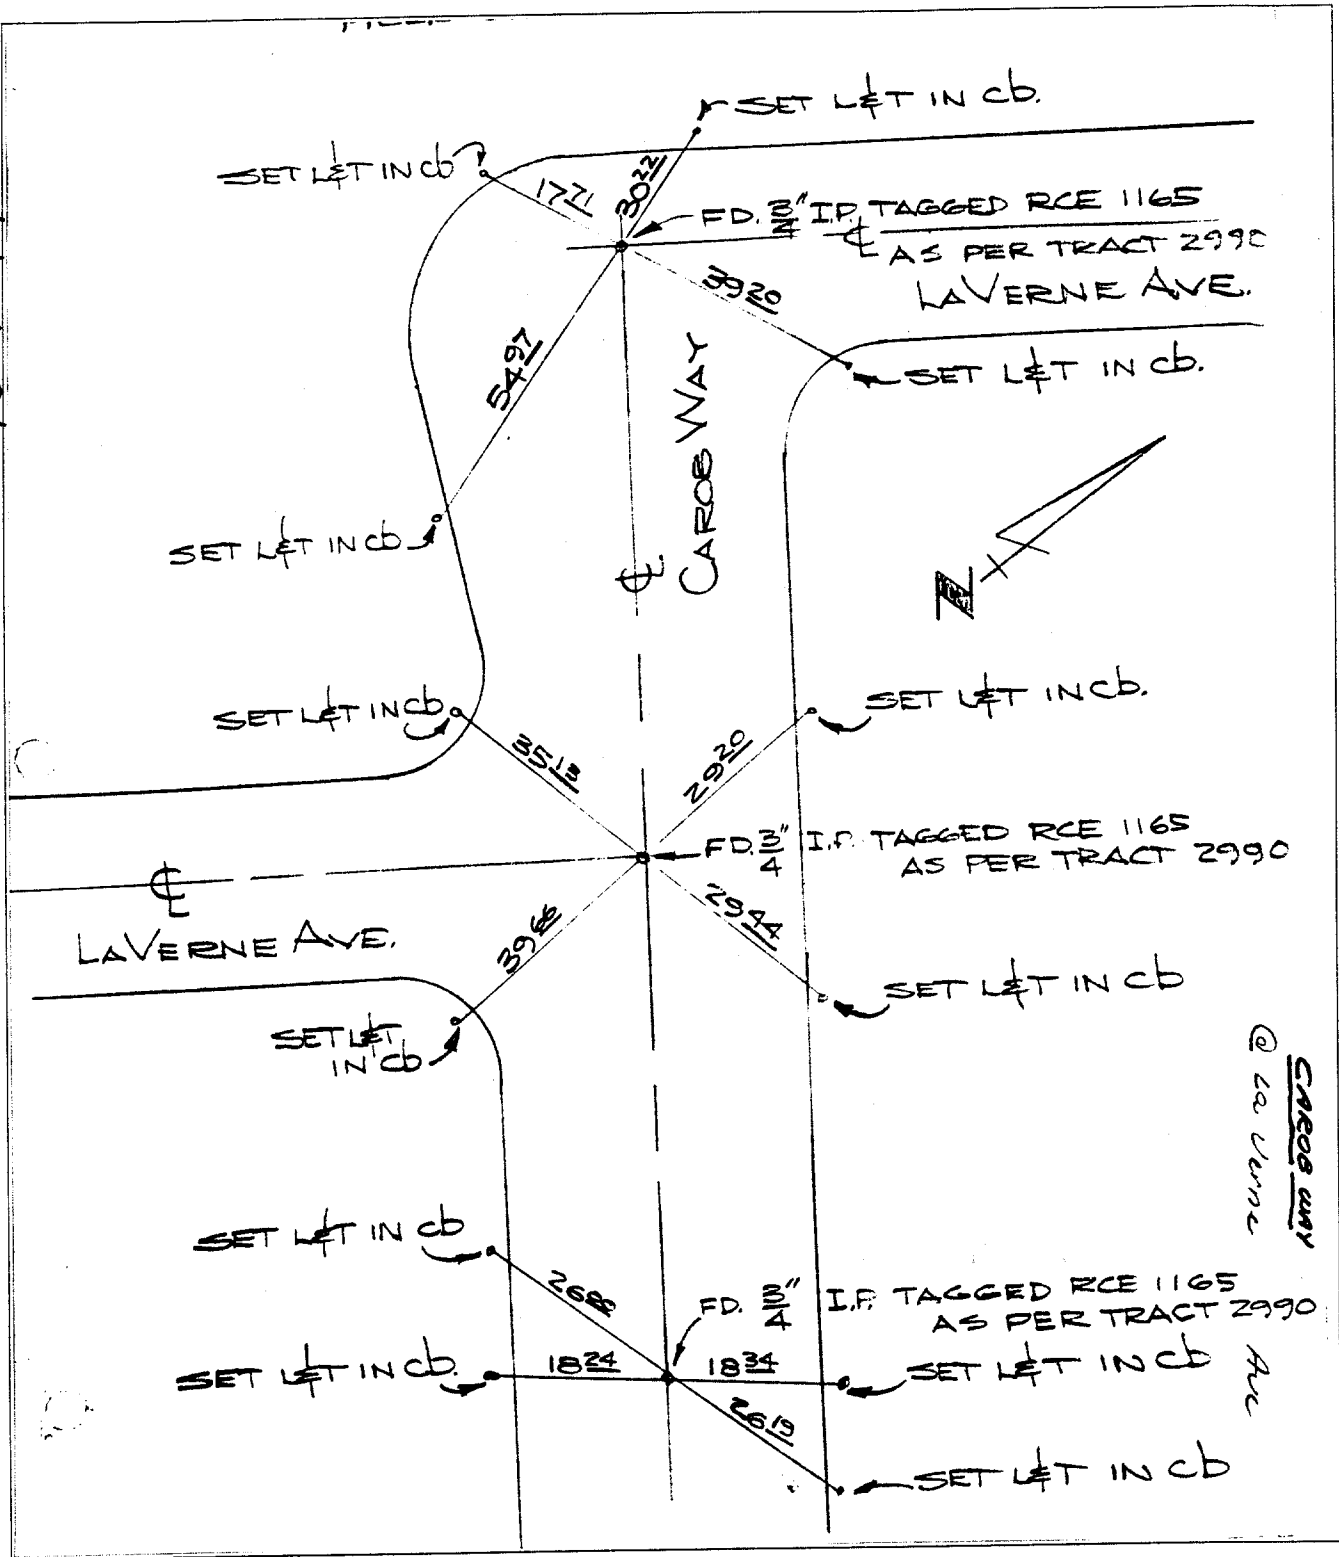 SET L&T IN cb.
SET L&T IN cb
17 71
30 22
FD. 3/4" I.P. TAGGED RCE 1165
℄ AS PER TRACT 2990
LAVERNE AVE.
39 20
54 97
SET L&T IN cb.
CAROB WAY
℄
SET L&T IN cb
N
SET L&T IN cb.
SET L&T IN cb
35 13
29 20
FD. 3/4" I.P. TAGGED RCE 1165
AS PER TRACT 2990
℄
29 44
LAVERNE AVE.
39 66
SET L&T IN cb
SET L&T
IN cb
CAROB WAY
@ La Verne Ave
SET L&T IN cb
FD. 3/4" I.P. TAGGED RCE 1165
AS PER TRACT 2990
SET L&T IN cb.
18 24
18 34
SET L&T IN cb
26 19
SET L&T IN cb